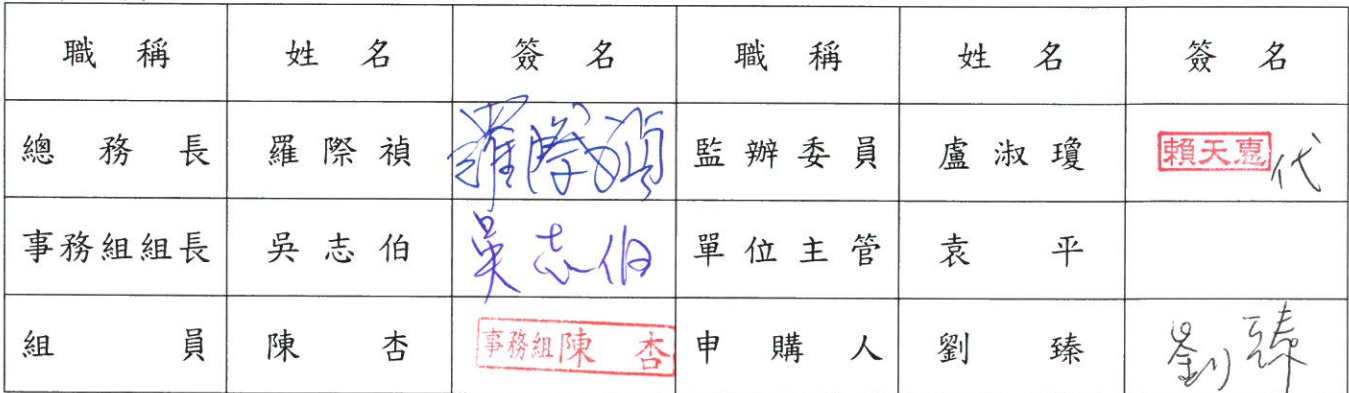 職稱 姓名 簽名 職稱 姓名 簽名
總務長 羅際禎 羅際禎 監辦委員 盧淑瓊 賴天惠代
事務組組長 吳志伯 吳志伯 單位主管 袁平
組員 陳杏 事務組陳杏 申購人 劉臻 劉臻